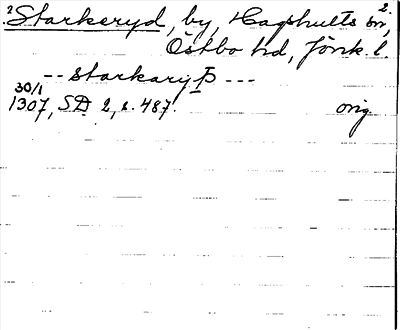 2 Starkeryd, by, Hagshults sn, 2.
Östbo hd, Jönk. l.
-- starkaryþ ---
30/1
1307, SD 2, s. 487. orig.